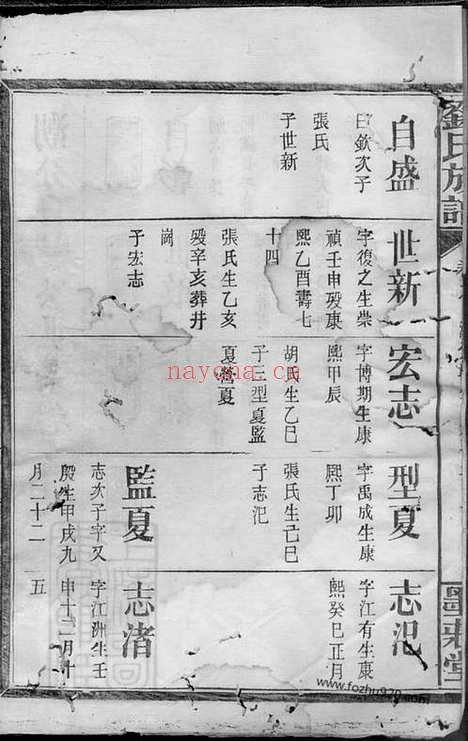 劉氏族譜
墨莊堂
自盛
曰欽次子
張氏
子世新
世新
字復之生崇
禎壬申殁康
熙乙酉壽七
十四
張氏生乙亥
殁辛亥葬井
崗
子宏志
宏志
字博期生康
熙甲辰
胡氏生乙巳
子三型夏監
夏營夏
型夏
字禹成生康
熙丁卯
張氏生己巳
子志汜
監夏
志次子字又
殷生甲戌九
月二十二
志汜
字江有生康
熙癸巳正月
志渚
字江洲生壬
申十二月十
五
nayona.cn
www.fozhu920.com